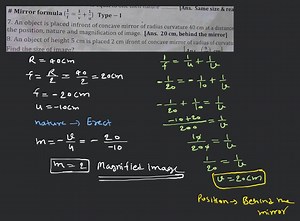 # Mirror formula (1/f = 1/v + 1/u) Type – 1
7. An object is placed infront of concave mirror of radius curvature 40 cm at a distance
the position, nature and magnification of image. [Ans. 20 cm, behind the mirror]
8. An object of height 5 cm is placed 2 cm infront of concave mirror of radius of
Find the size of image?
R = 40cm
f = R/2 = 40/2 = 20cm
f = -20cm
u = -10cm
nature → Erect
m = -v/u = -20/-10
m = 2 Magnified Image
1/f = 1/u + 1/v
-1/20 = -1/10 + 1/v
-1/20 + 1/10 = 1/v
-10+20/200 = 1/v
10/200 = 1/v
1/20 = 1/v
v = 20cm
Position → Behind the
mirror